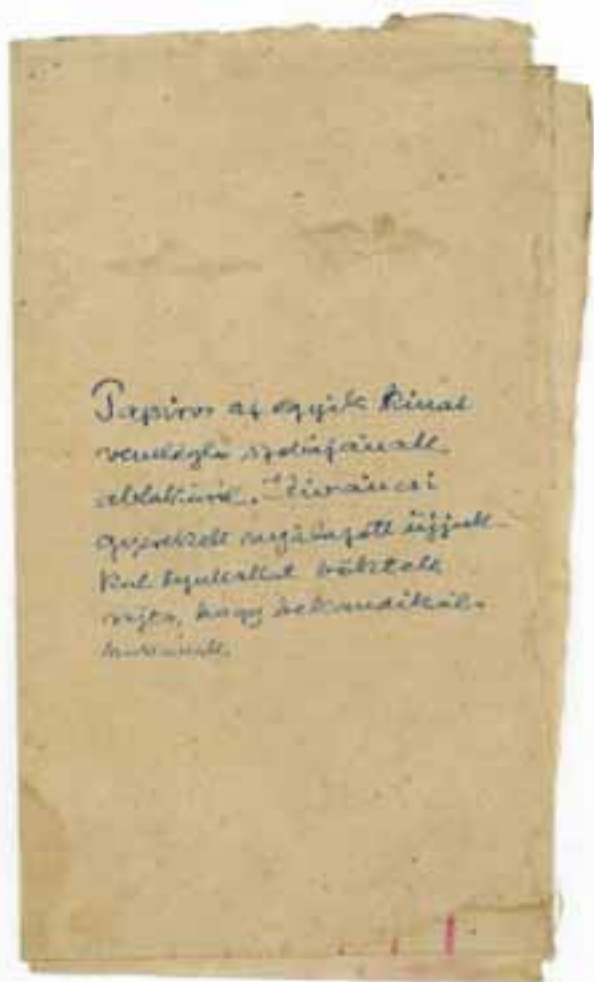 Papiros az egyik kinai
vendéglő szobájának
ablakáról. Kiváncsi
gyerekek megnyálazott ujjuk-
kal lyukakat böktek
rajta, hogy bekandikál-
hassanak.